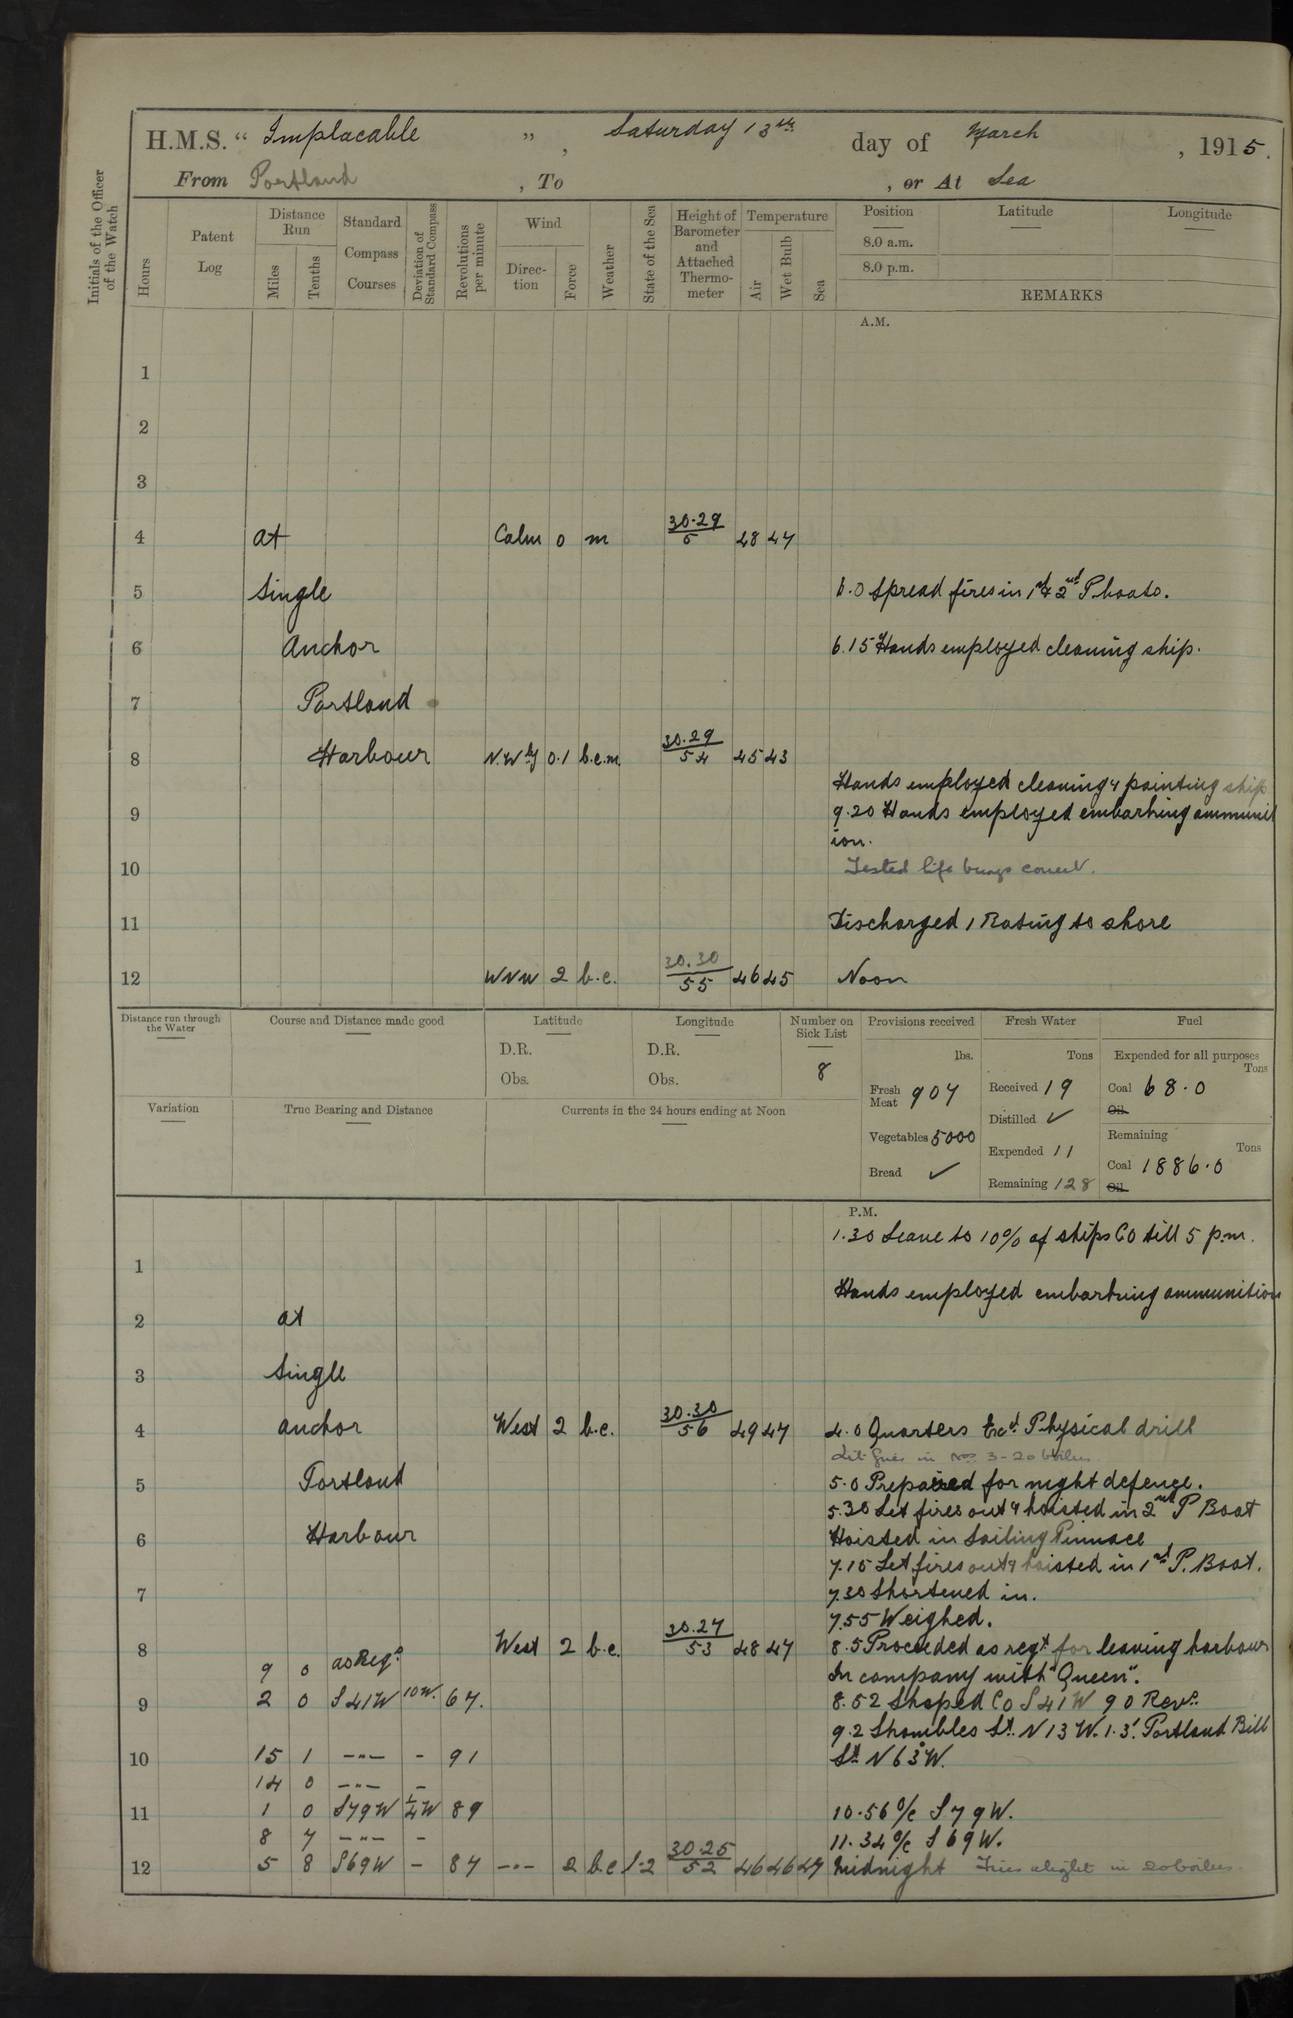 H.M.S. “ Implacable ” , Saturday 13th day of March , 1915.
From Portland , To , or At Sea
Initials of the Officer of the Watch
Hours
Patent Log
Distance Run
Miles
Tenths
Standard Compass Courses
Deviation of Standard Compass
Revolutions per minute
Wind
Direction
Force
Weather
State of the Sea
Height of Barometer and Attached Thermometer
Temperature
Air
Wet Bulb
Sea
Position Latitude Longitude
8.0 a.m.
8.0 p.m.
REMARKS
A.M.
1
2
3
4 at Calm 0 m 30.29 48 47
5 Single 6.0 Spread fires in 1st & 2nd P boats.
6 Anchor 6.15 Hands employed cleaning ship.
7 Portland
8 Harbour N.Wly 0.1 b.c.m. 30.29 54 45 43
Hands employed cleaning & painting ship
9 9.20 Hands employed embarking ammunit
ion.
10 Tested life buoys correct.
11 Discharged 1 Rating to shore
12 WNW 2 b.c. 30.30 55 46 45 Noon
Distance run through the Water
Course and Distance made good
Latitude
D.R.
Obs.
Longitude
D.R.
Obs.
Number on Sick List
8
Provisions received
lbs.
Fresh Meat 907
Vegetables 5000
Bread ✓
Fresh Water
Tons
Received 19
Distilled ✓
Expended 11
Remaining 128
Fuel
Expended for all purposes
Tons
Coal 68.0
Oil
Remaining
Tons
Coal 1886.0
Oil
Variation
True Bearing and Distance
Currents in the 24 hours ending at Noon
P.M.
1.30 Leave to 10% of ships Co till 5 p.m.
1
Hands employed embarking ammunition
2 at
3 Single
4 anchor West 2 b.c. 30.30 56 49 47 4.0 Quarters Exd. Physical drill
Lit fires in Nos 3-20 boilers
5 Portland 5.0 Prepared for night defence.
5.30 Let fires out & hoisted in 2nd P Boat
6 Harbour Hoisted in Sailing Pinnace
7.15 Let fires out & hoisted in 1st P. Boat.
7 7.30 Shortened in.
7.55 Weighed.
8 West 2 b.c. 30.27 53 48 47 8.5 Proceeded as reqd. for leaving harbour
9 0 as Reqd. In company with "Queen".
9 2 0 S41W 10W. 67. 8.52 Shaped Co S41W 90 Revs.
9.2 Shambles Lt. N13W. 1.3'. Portland Bill
10 15 1 -"- - 91 Lt. N63°W.
14 0 -"- -
11 1 0 S79W ¼W 89 10.56 a/c S79W.
8 7 -"- - 11.34 a/c S69W.
12 5 8 S69W - 87 -"- 2 b.c 1-2 30.25 52 46 46 47 Midnight Fires alight in 20 boilers.